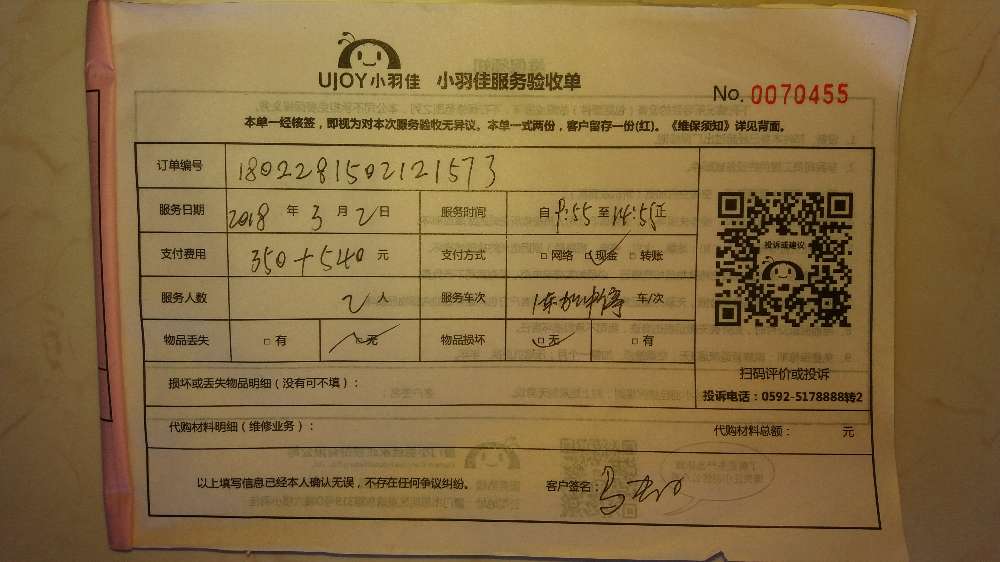 UJOY小羽佳 小羽佳服务验收单
No. 0070455
本单一经核签，即视为对本次服务验收无异议。本单一式两份，客户留存一份(红)。《维保须知》详见背面。
订单编号 1802281502121573
服务日期 2018 年 3 月 2 日 服务时间 自 9:55 至 14:55 止
支付费用 350+540 元 支付方式 □ 网络 □ 现金 □ 转账
服务人数 2 人 服务车次 1车加中停 车/次
物品丢失 □ 有 □ 无 物品损坏 □ 无 □ 有
投诉或建议
扫码评价或投诉
投诉电话：0592-5178888转2
损坏或丢失物品明细（没有可不填）：
代购材料明细（维修业务）： 代购材料总额： 元
以上填写信息已经本人确认无误，不存在任何争议纠纷。 客户签名：